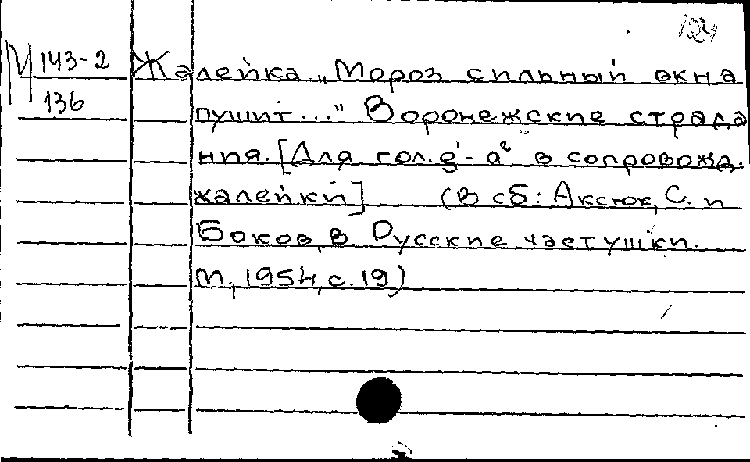 124
М 143-2
136
Жалейка „Мороз сильный окна
пушит..." Воронежские страда
ния. [Для гол. g'- a² в сопровожд.
жалейки] (В сб: Аксюк, С. и
Боков, В Русские частушки.
М, 1954, с. 19)